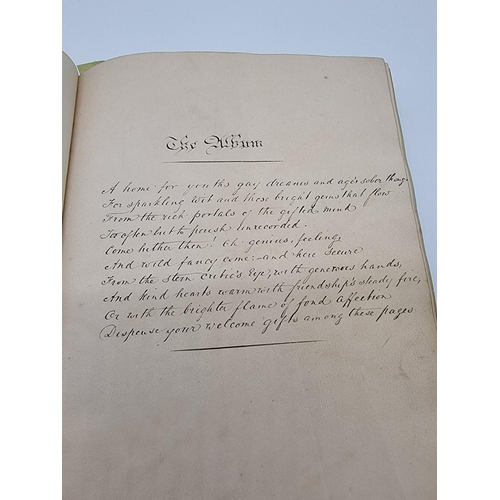 The Album
A home for youths gay dreams and age's sober thoug
For sparkling Wit and those bright gems that flow
From the rich portals of the gifted mind
Too often but to perish unrecorded.
Come hither then! Oh genius, feeling,
And wild fancy come:—and here secure
From the stern Critic's Eye, with generous hands,
And kind hearts warm with friendship's steady fire,
Or with the brighter flame of fond affection
Dispense your welcome gifts among these pages